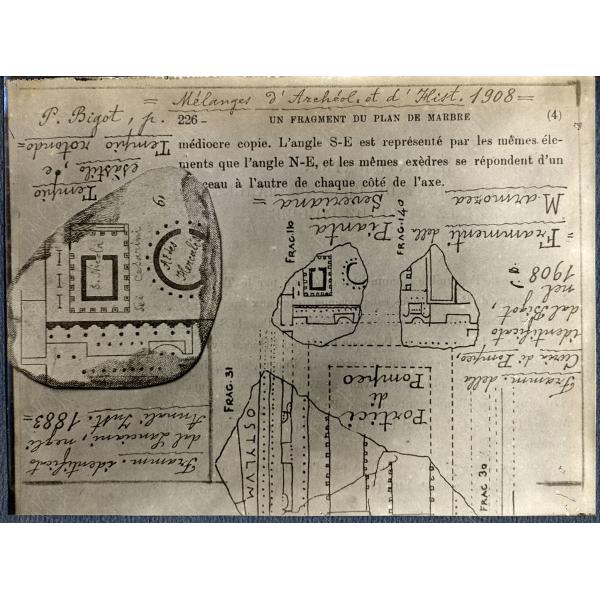 = Mélanges d'Archéol. et d'Hist. 1908 =
P. Bigot, p. 226 - UN FRAGMENT DU PLAN DE MARBRE (4)
médiocre copie. L'angle S-E est représenté par les mêmes élé-
ments que l'angle N-E, et les mêmes exèdres se répondent d'un
ceau à l'autre de chaque côté de l'axe.
Tempio
esàstilo
e,
Tempio rotondo =
= Frammenti della
Pianta
Marmorea
Severiana =
FRAG. 110
FRAG. 140
Framm. della
Curia di Pompeo,
identificato
dal Bigot,
nel
1908
Portici
di
Pompeo
FRAG. 31
OSTYLVM
FRAG 30
Aedes
Herculis
Framm. identificato
dal Lanciani, negli
Annali Inst. 1883 =